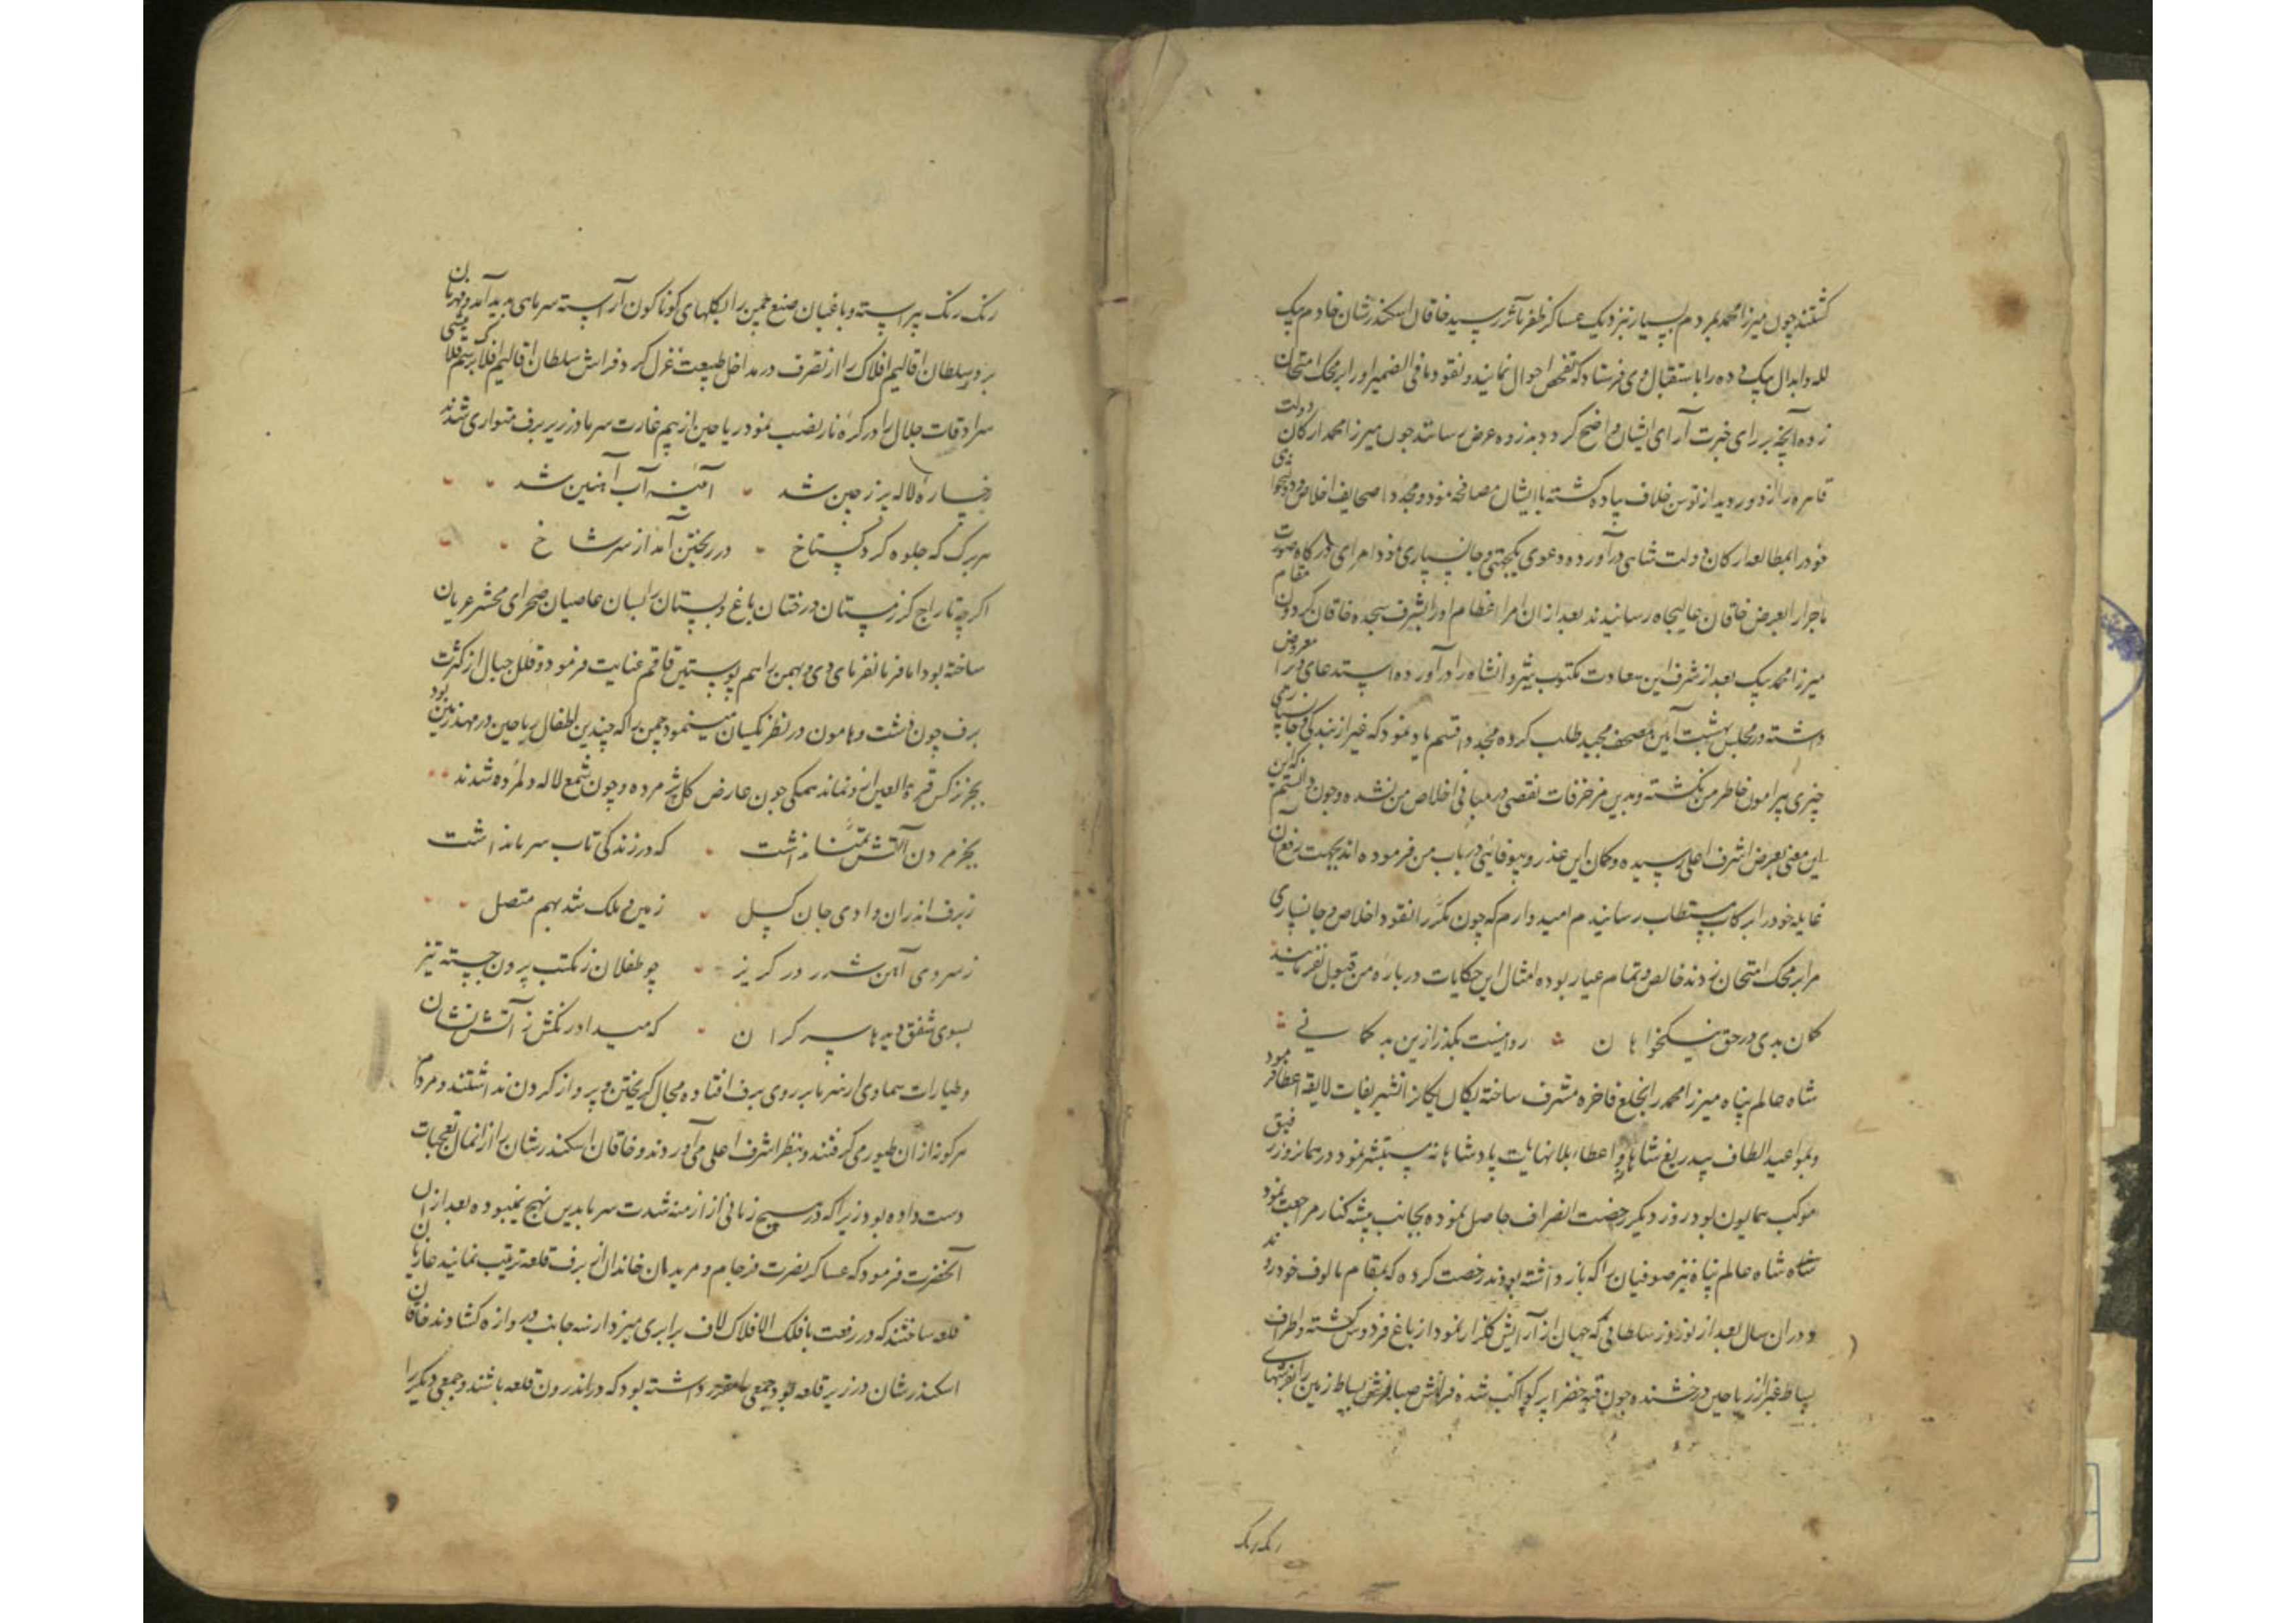 کشتند چون میرزا محمد بمردم بسیار بنزدیک عساکر ظفر مآثر رسید خاقان اسکندر شان خادم بیک
لله و ابدال بیک دده را باستقبال وی فرستاد که تفحص احوال نمایند و نقود ما فی الضمیر او را بر محک امتحان
زده آنچه بر رای خبرت آرای ایشان واضح کردد بذروه عرض رسانند چون میرزا محمد ارکان دولت
قاهره را از دور دید از توسن خلاف پیاده کشته با ایشان مصافحه نمود و مجددا صحایف اخلاص و
خود را بمطالعه ارکان دولت شاهی درآورده دعوی یکجهتی و جانسپاری نمود امرای درکاه صورت
ماجرا را بعرض خاقان عالیجاه رسانیدند بعد از ان امراء عظام او را بشرف سجده خاقان کردون مقام
میرزا محمد بیک بعد از شرف این سعادت مکتوب شروانشاه را درآورده استدعای معروض
داشته در مجلس بهشت آیین مصحف مجید طلب کرده مجددا قسم یاد نمود که غیر از بندکی و جانسپاری
چیزی پیرامون خاطر من نکشته و بدین مزخرفات نقصی در مبانی اخلاص من نشده و چون دانستم که این
این معنی بعرض اشرف اعلی رسیده و کمان این عذر و بیوفائی در باب من فرموده اند بجهت رفع آن
غایله خود را برکاب مستطاب رسانیدم امیدوارم که چون مکرر نقود اخلاص و جانسپاری
مرا بر محک امتحان زدند خالص و تمام عیار بوده امثال این حکایات درباره من قبول نفرمایند
کمان بدی در حق نیکخواهان روا نیست بکذر ازین بد کمانی
شاه عالم پناه میرزا محمد را بخلع فاخره مشرف ساخته یکان یکان را تشریفات لایقه اعطا فرمود
و بمواعید الطاف بیدریغ شاهی و اعطاء بلا نهایت پادشاهانه مستبشر نمود در همانروز رفیق
موکب همایون بود روز دیکر رخصت انصراف حاصل نموده بجانب بیشه کنار مراجعت نمود
شاه شاه عالم پناه نیز صوفیان را که باز داشته بودند رخصت کرده که بمقام مالوف خود روند
و در ان سال بعد از نوروز سلطانی که جهان از آرایش کلزار نمودار باغ فردوس کشته و اطراف
بساط غبرا از ریاحین درخشنده چون قبه خضرا پر کواکب شده فراش صبا بفرش بساط زمین را بفرشهای
رنک رنک
رنک رنک پیراسته و باغبان صنع چمن را بکلهای کوناکون آراسته سرمای پدید آمد و قهرمان
برد سلطان اقالیم افلاک را از تصرف در مداخل طبیعت عزل کرد فراش سلطان اقالیم افلاک
سرادقات جلال را در کره نار نصب نمود ریاحین از بیم غارت سرما در زیر برف متواری شدند
رخساره لاله پر ز چین شد آئینه آب آهنین شد
هر برک که جلوه کرد کستاخ در ریختن آمد از سر شاخ
اکرچه تاراج کر زمستان درختان باغ و بستان را بسان عاصیان صحرای محشر عریان
ساخته بود اما فرمانفرمای دی و بهمن را هم پوستین قاقم عنایت فرمود و قلل جبال از کثرت
برف چون دشت و هامون در نظر یکسان مینمود چمن را که چندین اطفال ریاحین در مهد زمین بود
بجز نرکس قرة العین او نماند همکی چون عارض کل پژمرده و چون شمع لاله دلمرده شدند
بجز مردن آتش تمنا نداشت که در زندکی تاب سرما نداشت
ز برف اندران وادی جان کسل زمین و فلک شد بهم متصل
ز سردی آهن شرر در کریز چو طفلان ز مکتب برون جسته تیز
بسوی شفق دیدها سر کران که میداد رنکش ز آتش نشان
و طیارات سماوی از سرما بر روی برف افتاده مجال کریختن و پرواز کردن نداشتند و مردم
هر کونه از ان طیور می کرفتند و بنظر اشرف اعلی می آوردند و خاقان اسکندر شان را از انحال تعجبات
دست داده بود زیرا که در هیچ زمانی از ازمنه شدت سرما بدین نهج نمیبوده بعد از ان
آنحضرت فرمود که عساکر نصرت فرجام و مریدان خاندان از برف قلعه ترتیب نمایند غازیان
قلعه ساختند که در رفعت با فلک الافلاک لاف برابری میزد از سه جانب دروازه کشادند خاقان
اسکندر شان در زیر قلعه بود جمعی مقرر داشته بود که در اندرون قلعه باشند و جمعی دیکر را